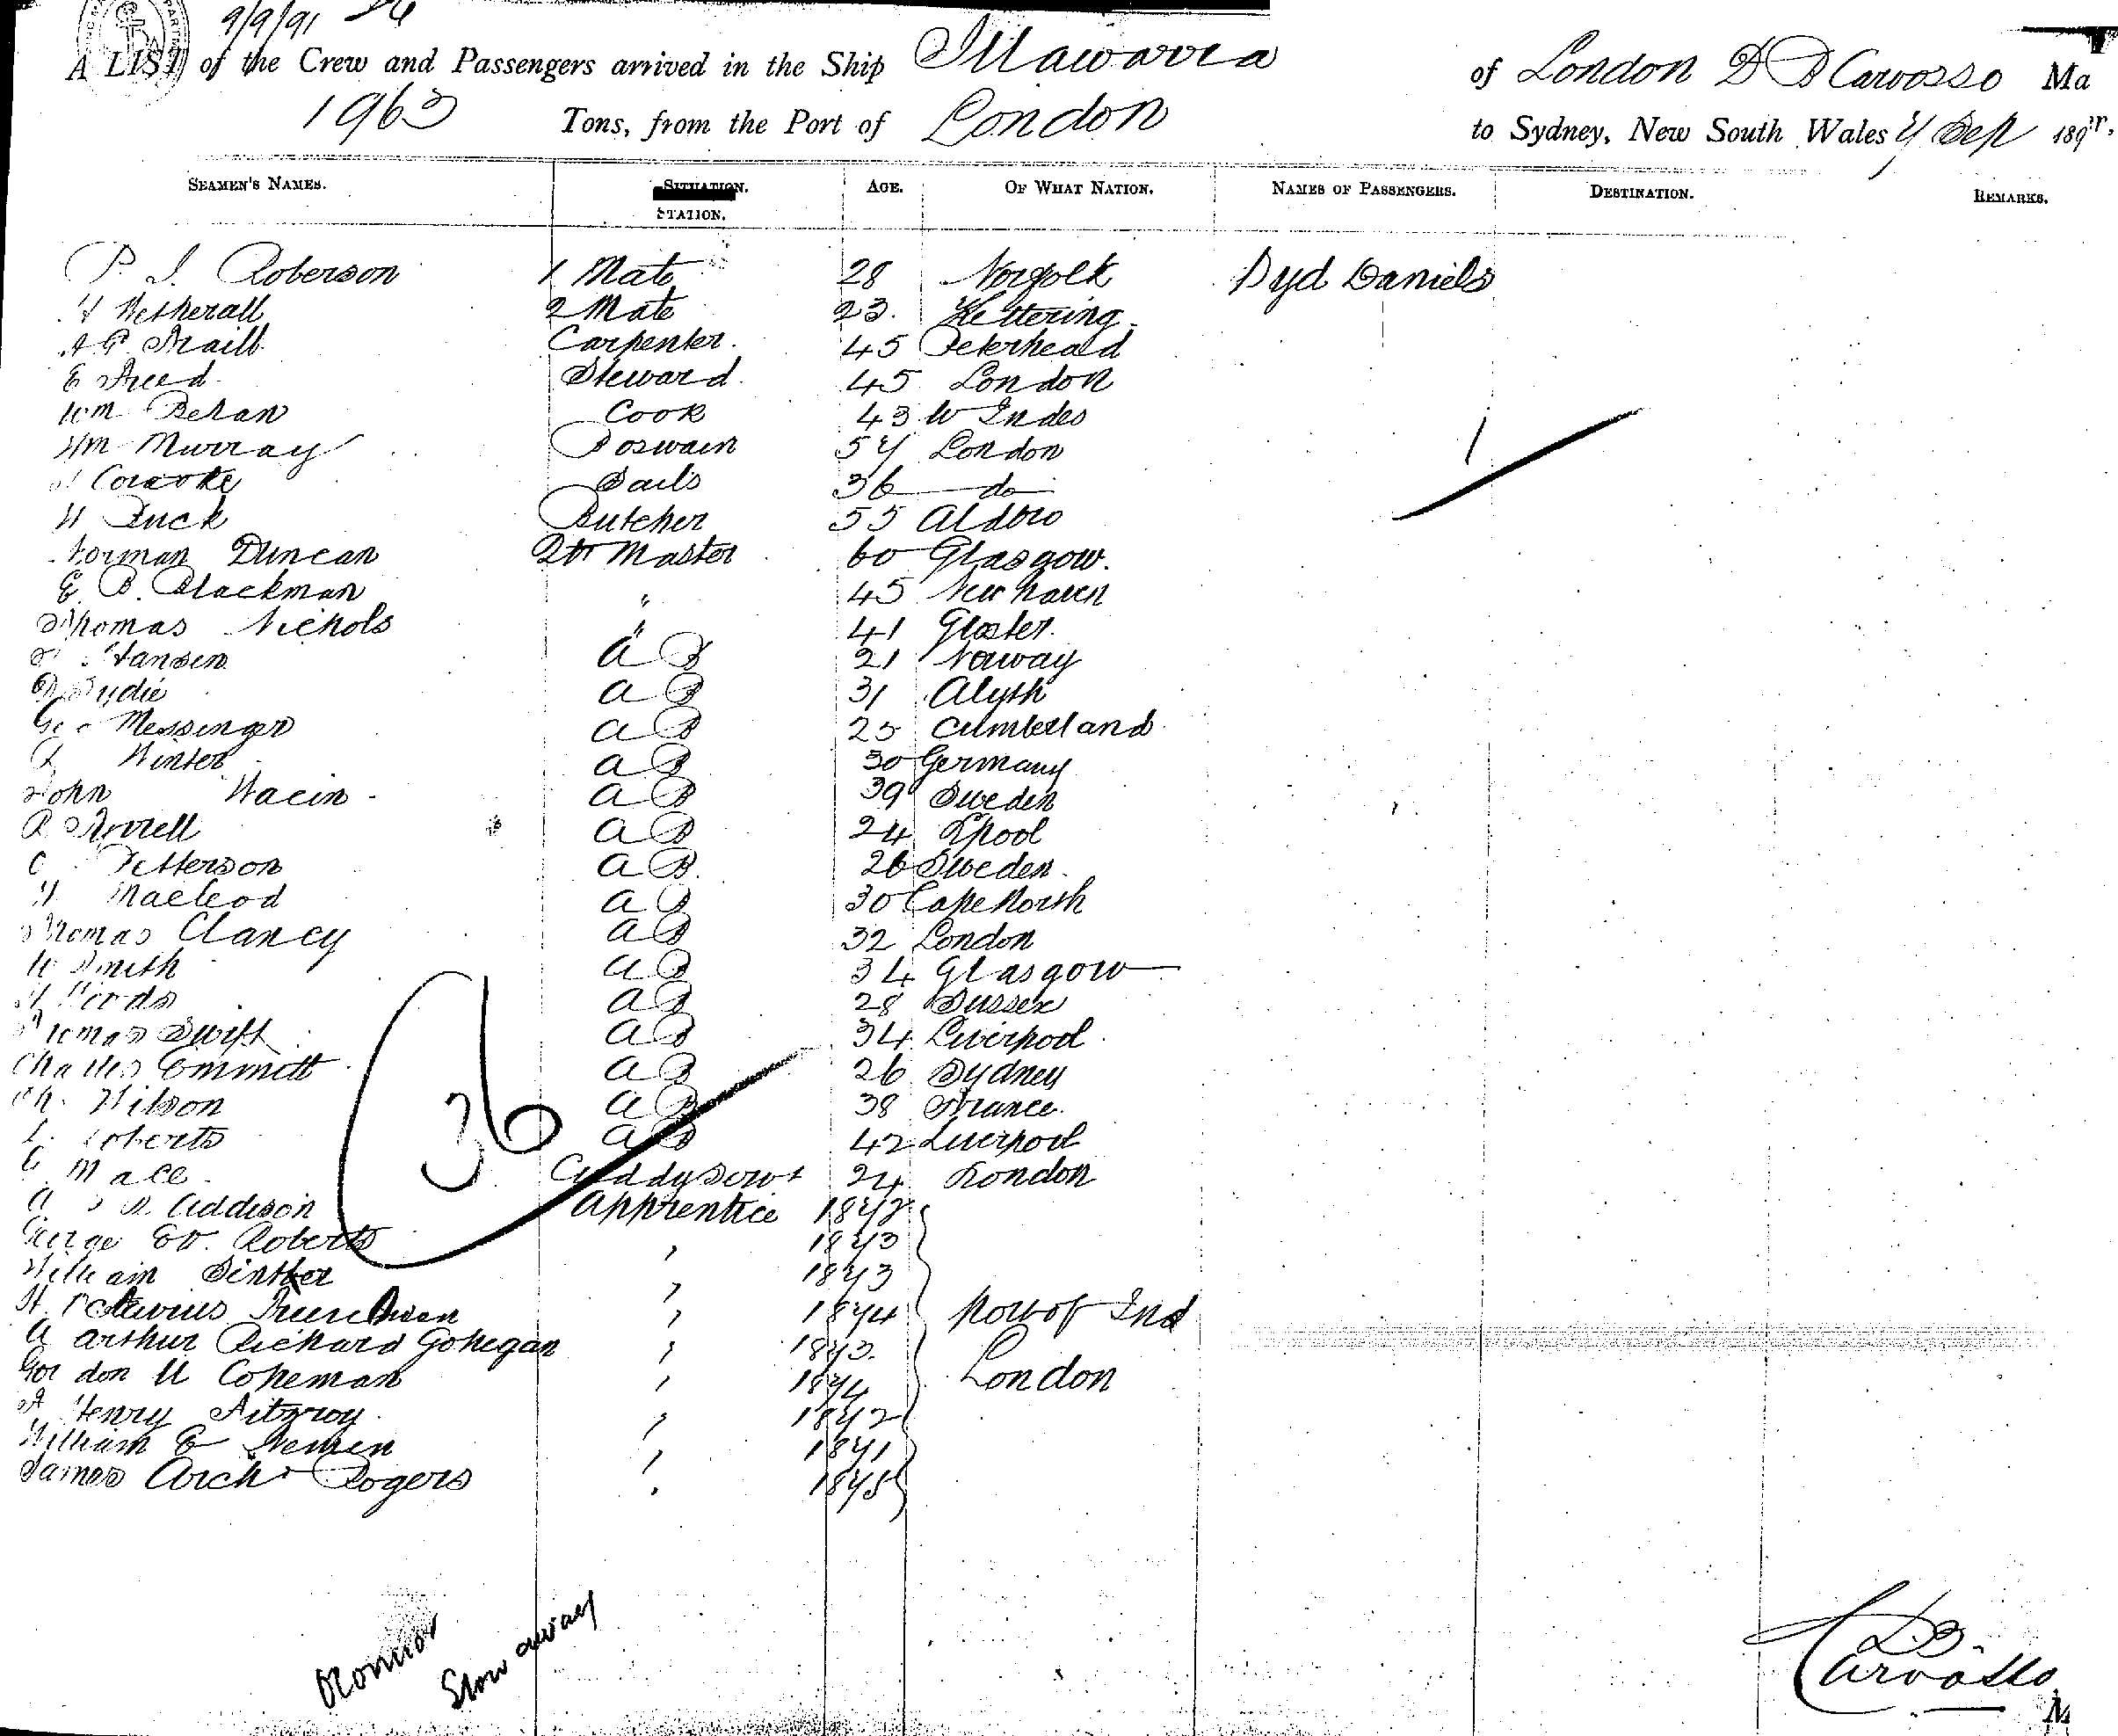 9/9/91
A LIST of the Crew and Passengers arrived in the Ship Illawarra of London D D Carvosso Ma
1963 Tons, from the Port of London to Sydney, New South Wales 7 Sep 189
SEAMEN'S NAMES. SITUATION. STATION. AGE. OF WHAT NATION. NAMES OF PASSENGERS. DESTINATION. REMARKS.
P. J. Roberson 1 Mate 28 Norfolk Syd Daniels
H Wetherall 2 Mate 23. Kettering.
A G Traill Carpenter. 45 Peterhead
E Freed. Steward. 45 London
Wm Behan Cook 43 W Indes
Wm Murray Boswain 57 London
Sails 36 do
H Tuck Butcher 55 Aldbro
Norman Duncan Qtr Master 60 Glasgow.
E. B. Blackman " 45 New haven
Thomas Nichols " 41 Gloster.
Hansen a B 21 Norway
a B 31 Alyth
Geo Messenger a B 25 Cumberland
Winter a B 30 Germany
John Wacin a B 39 Sweden
R a B 24 Lpool
C Petterson a B. 26 Sweden.
H Macleod a B 30 Cape North
Thomas Clancy a B 32 London
W Smith a B 34 Glasgow
H Woods a B 28 Sussex
Thomas Swift a B 34 Liverpool
Charles Emmett a B 26 Sydney
Ch. Wilson a B 38 France.
L. Roberts a B 42 Liverpool
C Mace Cuddy Servt 24 London
36
A Addison Apprentice 1872
George Ed. Roberts " 1873
William " 1873
H. Octavius " 1874 Port of Ind
A Arthur Richard Gohegan " 1873.
Gordon U Copeman " 1874 London
Henry Fitzroy " 1872
William E " 1871
James Arch Rogers " 1875
Stow away
D.D. Carvosso
M